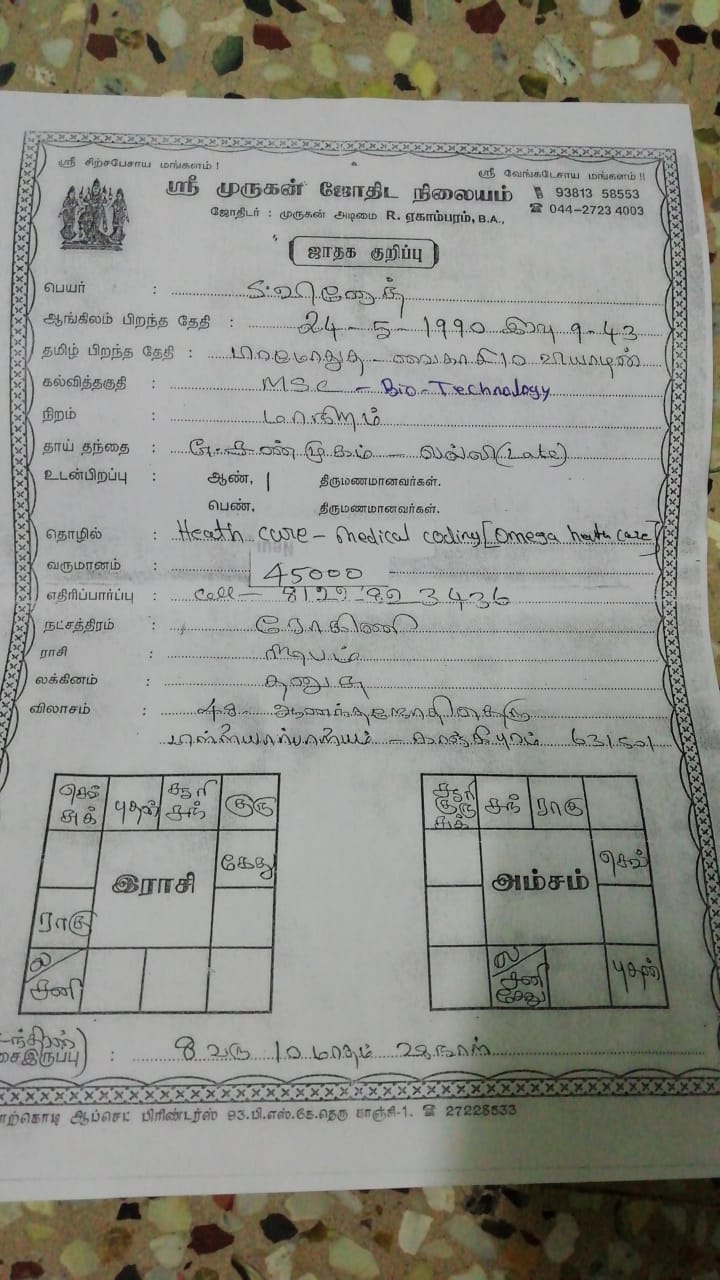 ஸ்ரீ சிற்சபேசாய மங்களம் !
ஸ்ரீ வேங்கடேசாய மங்களம் !!
ஸ்ரீ முருகன் ஜோதிட நிலையம்
93813 58553
ஜோதிடர் : முருகன் அடிமை R. ஏகாம்பரம், B.A.,
044-2723 4003
ஜாதக குறிப்பு
பெயர் : S.வினோத்
ஆங்கிலம் பிறந்த தேதி : 24-5-1990 இரவு 9-43
தமிழ் பிறந்த தேதி : பிரமோதூத - வைகாசி 10 வியாழன்
கல்வித்தகுதி : M.S.C - Bio-Technology
நிறம் : மாநிறம்
தாய் தந்தை : சண்முகம் - வல்லி (Late)
உடன்பிறப்பு : ஆண், 1 திருமணமானவர்கள்.
பெண், திருமணமானவர்கள்.
தொழில் : Heath care - Medical coding [Omega heath care]
வருமானம் : 45000
எதிரிப்பார்ப்பு : Call - 3436
நட்சத்திரம் : ரோகிணி
ராசி : ரிஷபம்
லக்கினம் : தனுசு
விலாசம் : தெரு
பிள்ளையார்பாளையம் - காஞ்சிபுரம் 631501
செவ் சுக் புதன் சூரி சந் குரு
கேது
இராசி
ராகு
ல சனி
சூரி குரு சுக் சந் ராகு
செவ்
அம்சம்
ல சனி கேது புதன்
இருப்பு) : 8 வரு 10 மாதம் 28 நாள்
ஆப்செட் பிரிண்டர்ஸ் 93.பி.எஸ்.கே.தெரு காஞ்சி-1. ☎ 27228533